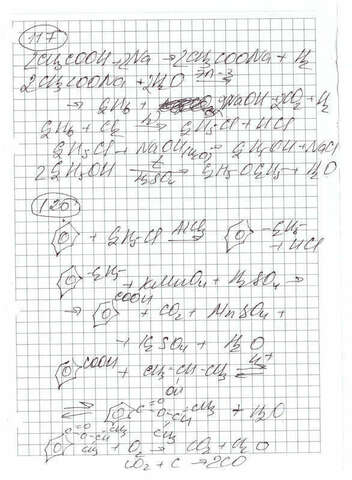 117
2CH3COOH + 2Na → 2CH3COONa + H2
2CH3COONa + 2H2O эл-з
→ C2H6 + 2NaOH + 2CO2 + H2
C2H6 + Cl2 hν → C2H5Cl + HCl
C2H5Cl + NaOH(H2O) → C2H5OH + NaCl
2C2H5OH t H2SO4 → C2H5OC2H5 + H2O
126
+ C2H5Cl AlCl3 → -C2H5 + HCl
-C2H5 + KMnO4 + H2SO4 →
→ COOH + CO2 + MnSO4 +
+ K2SO4 + H2O
COOH + CH3-CH-CH3 H+ ⇌
OH
⇌ C=O O-CH CH3 CH3 + H2O
C=O O-CH CH3 CH3 + O2 → CO2 + H2O
CO2 + C → 2CO